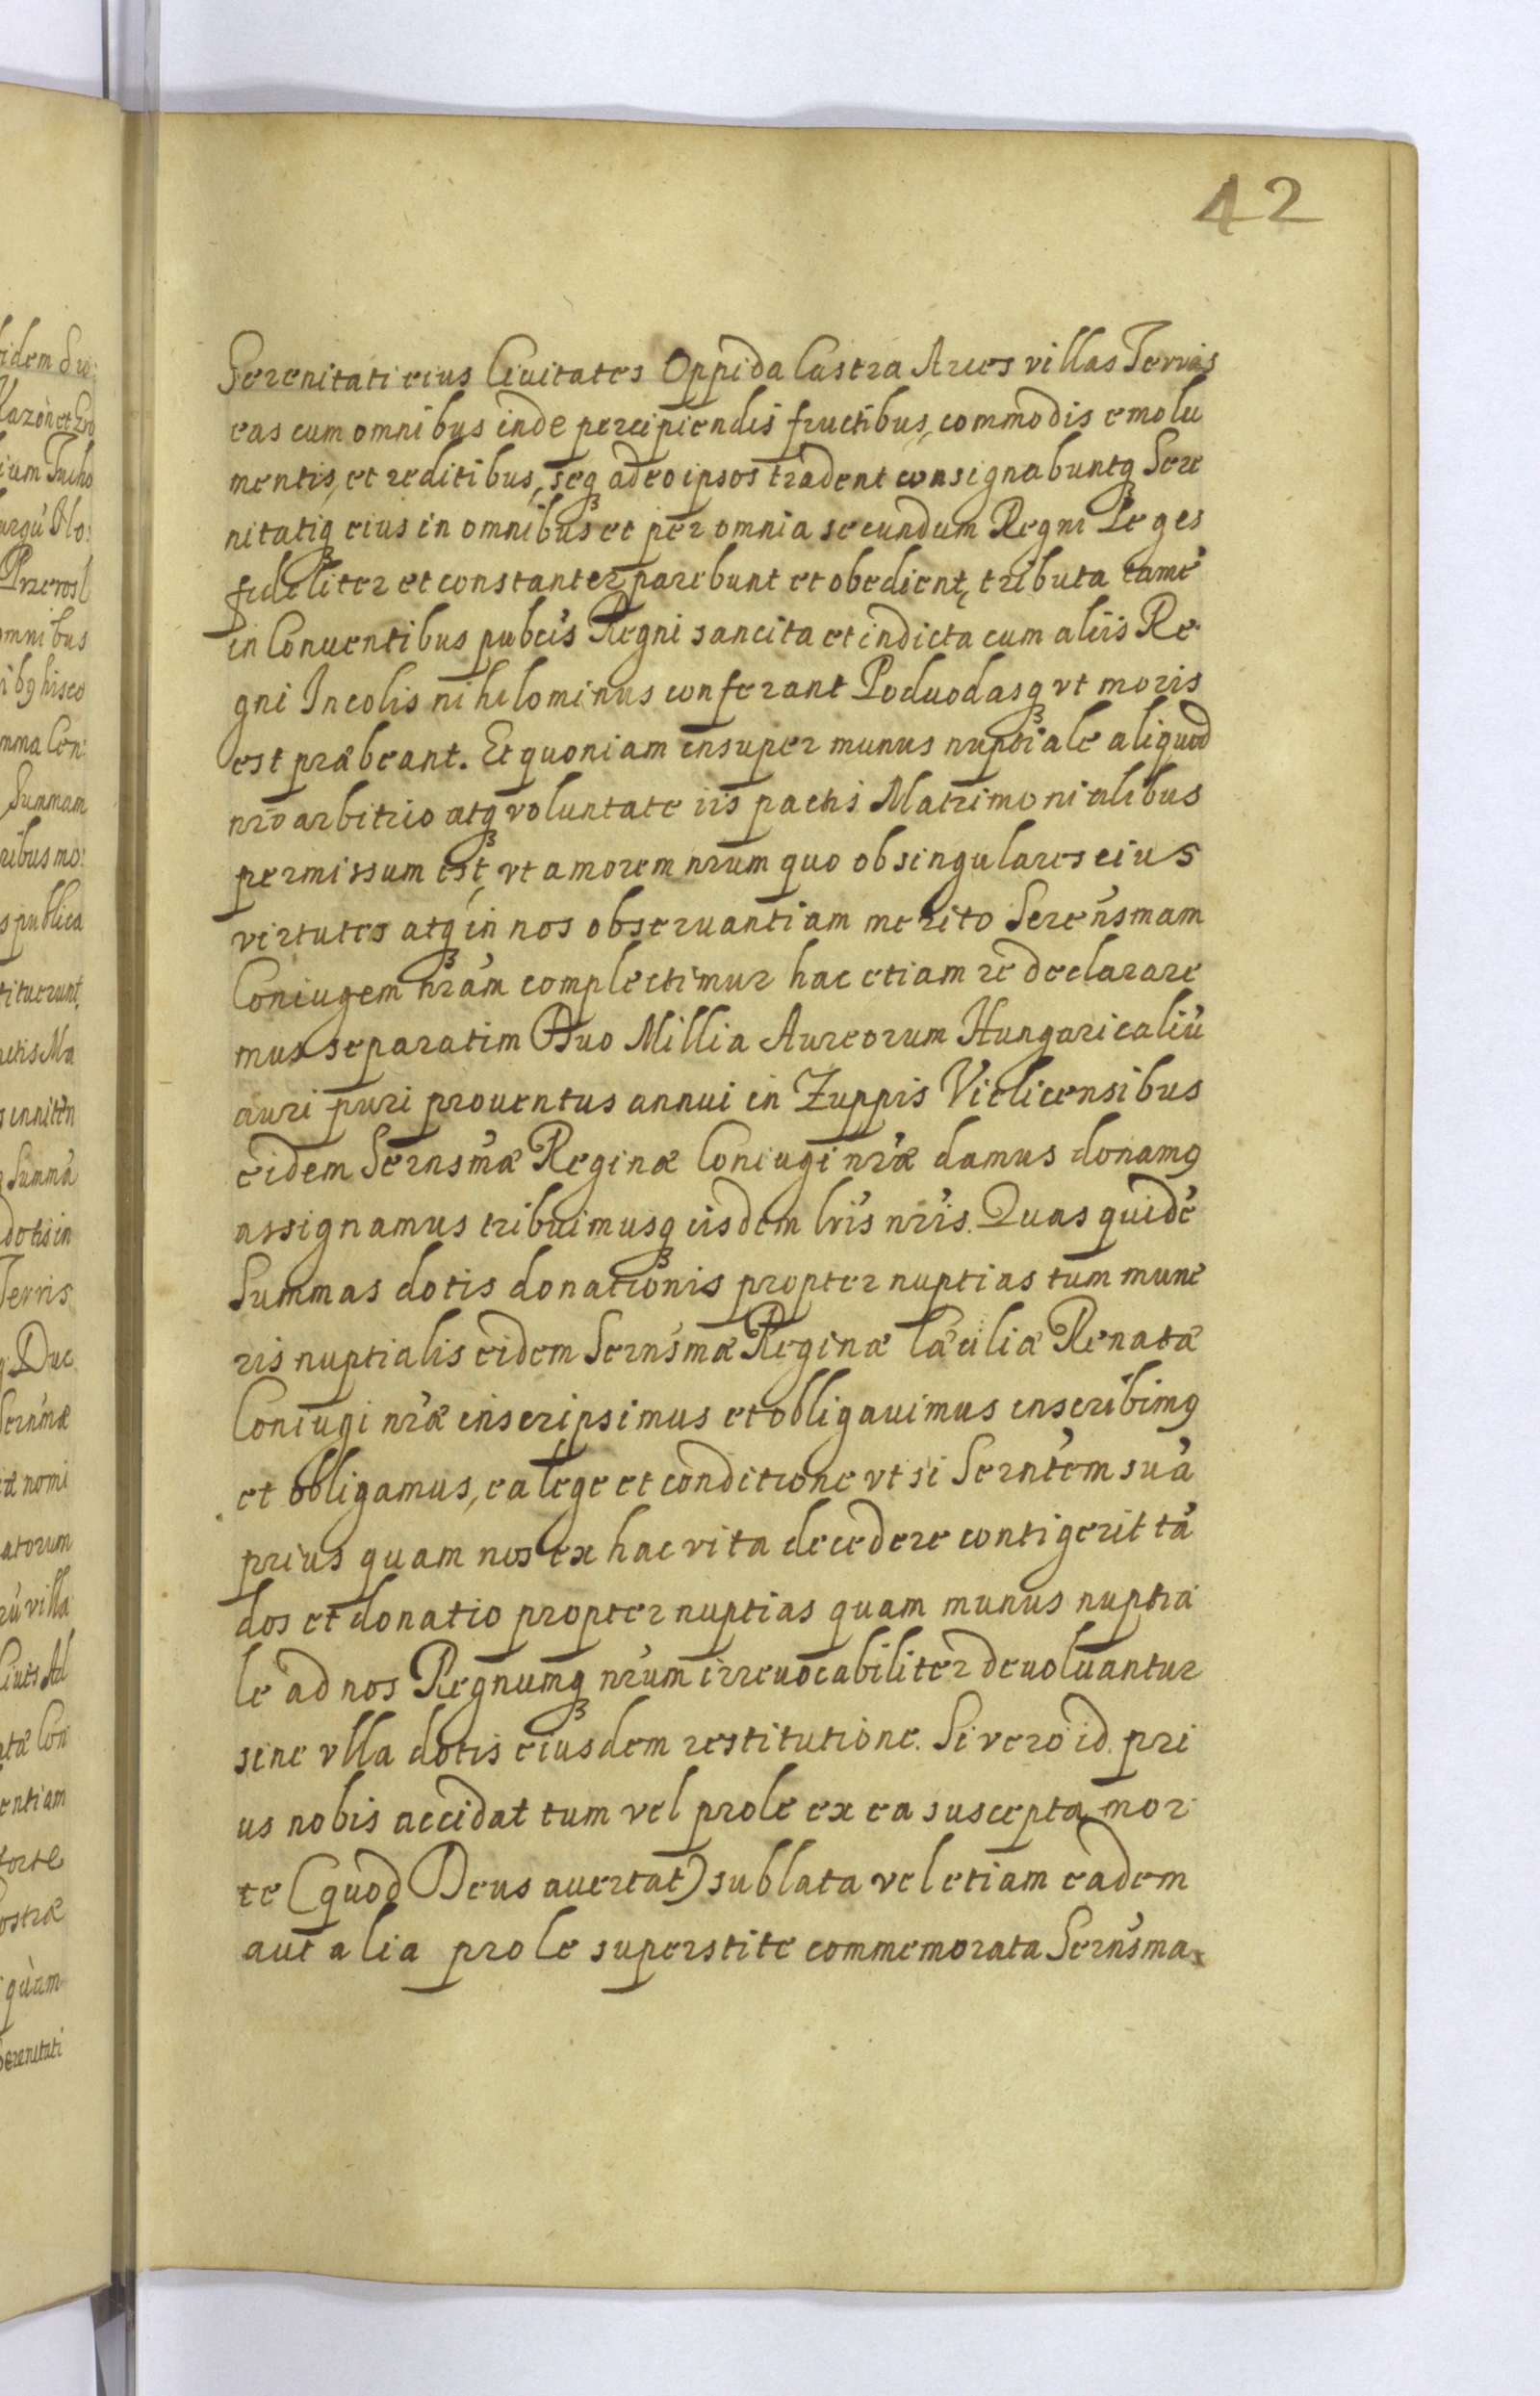 42
Serenitati eius Ciuitates Oppida Castra Arces villas Terras
eas cum omnibus inde percipiendis fructibus, commodis emolu
mentis, et reditibus, seq adeo ipsos tradent consignabuntq Sere
nitatiq eius in omnibus et per omnia secundum Regni Leges
fideliter et constanter parebunt et obedient, tributa tamè
in Conuentibus pubcis Regni sancita et indicta cum aliis Re
gni Incolis nihilominus conferant Poduodasq vt moris
est præbeant. Et quoniam insuper munus nuptiale aliquod
nrõ arbitrio atq voluntate iis pactis Matrimonialibus
permissum est, vt amorem nrum quo ob singulares eius
virtutes atq in nos obseruantiam merito Serensmam
Coniugem nram complectimur hac etiam re declarare
mus separatim Duo Millia Aureorum Hungaricaliù
auri puri prouentus annui in Zuppis Vielicensibus
eidem Sernsmæ Reginæ Coniugi nræ damus donamq
assignamus tribuimusq iisdem lris nris. Quas quidè
Summas dotis donationis propter nuptias tum mune
ris nuptialis eidem Sernsmæ Reginæ Cæciliæ Renatæ
Coniugi nræ inscripsimus et obligauimus inscribimq
et obligamus, ea lege et conditione vt siSerntem suà
prius quam nos ex hac vita decedere contigerit tà
dos et donatio propter nuptias quam munus nuptia
le ad nos Regnumq nrum irreuocabiliter deuoluantur
sine vlla dotis eiusdem restitutione. Si vero id pri
us nobis accidat tum vel prole ex ea suscepta mor
te (quod Deus auertat) sublata vel etiam eadem
aut alia prole superstite commemorata Sernsma